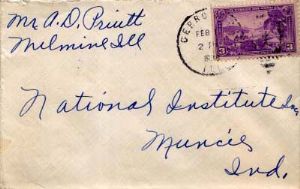 Mr A.D. Pruitt
Milmine Ill
FEB
2 P
3¢ 3¢
National Institute Inc
Muncie
Ind.